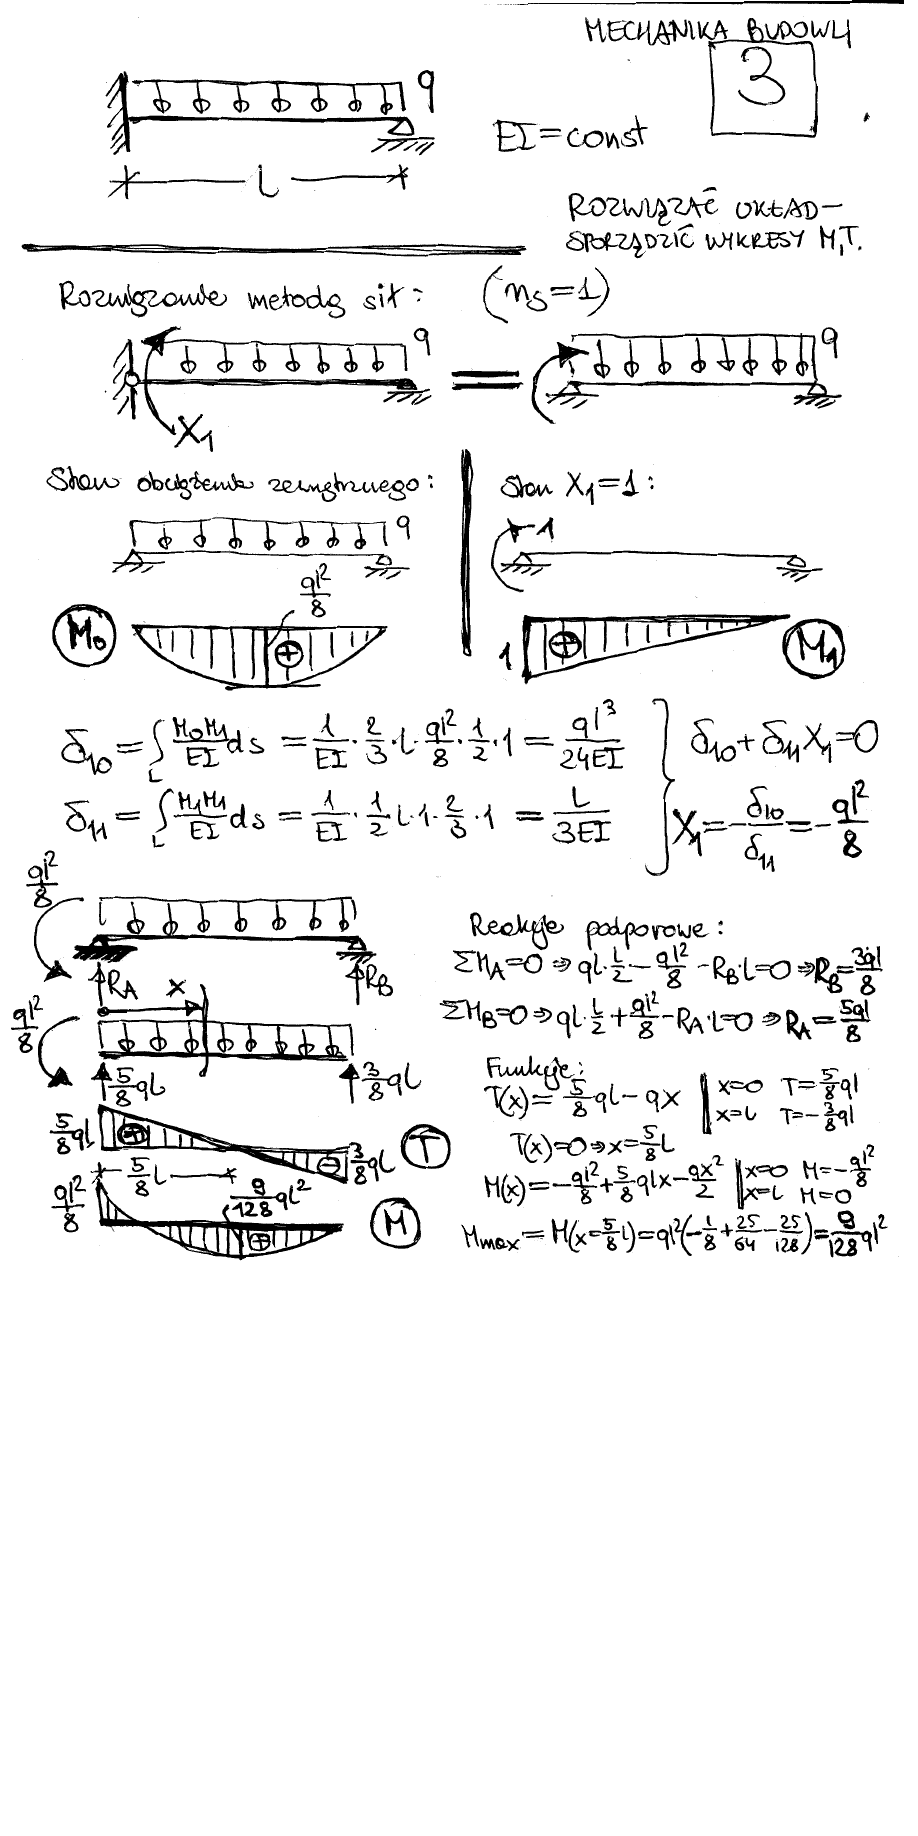 MECHANIKA BUDOWLI
3
q
EI=const
l
ROZWIĄZAĆ UKŁAD-
SPORZĄDZIĆ WYKRESY M,T.
Rozwiązanie metodą sił: (nₛ=1)
q
X₁
=
q
Stan obciążenia zewnętrznego:
q
ql²/8
M₀
+
Stan X₁=1:
1
1
+
M₁
δ₁₀ = ∫_L M₀M₁/EI ds = 1/EI · 2/3 · l · ql²/8 · 1/2 · 1 = ql³/24EI
δ₁₁ = ∫_L M₁M₁/EI ds = 1/EI · 1/2 l·1 · 2/3 · 1 = L/3EI
δ₁₀+δ₁₁X₁=0
X₁=-δ₁₀/δ₁₁=-ql²/8
ql²/8
R_A
R_B
x
ql²/8
5/8 ql
3/8 ql
5/8 ql
+
-
3/8 ql
T
5/8 l
ql²/8
9/128 ql²
+
M
Reakcje podporowe:
ΣM_A=0 ⇒ ql·L/2 - ql²/8 - R_B·l=0 ⇒ R_B=3ql/8
ΣM_B=0 ⇒ ql·L/2 + ql²/8 - R_A·l=0 ⇒ R_A=5ql/8
Funkcje:
T(x)=5/8 ql - qx | x=0 T=5/8 ql
x=L T=-3/8 ql
T(x)=0 ⇒ x=5/8 L
M(x)=-ql²/8+5/8 qlx-qx²/2 | x=0 M=-ql²/8
x=L M=0
Mmax=M(x=5/8 l)=ql²(-1/8+25/64-25/128)=9/128 ql²